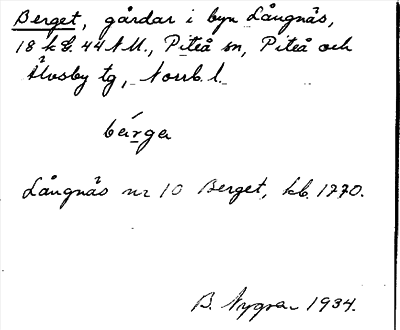 Berget, gårdar i byn Långnäs,
18 k Ö. 44 N.U., Piteå sn, Piteå och
Älvsby tg, Norrb. l.
bärga
Långnäs nr 10 Berget, kb. 1770.
B. Nygren 1934.